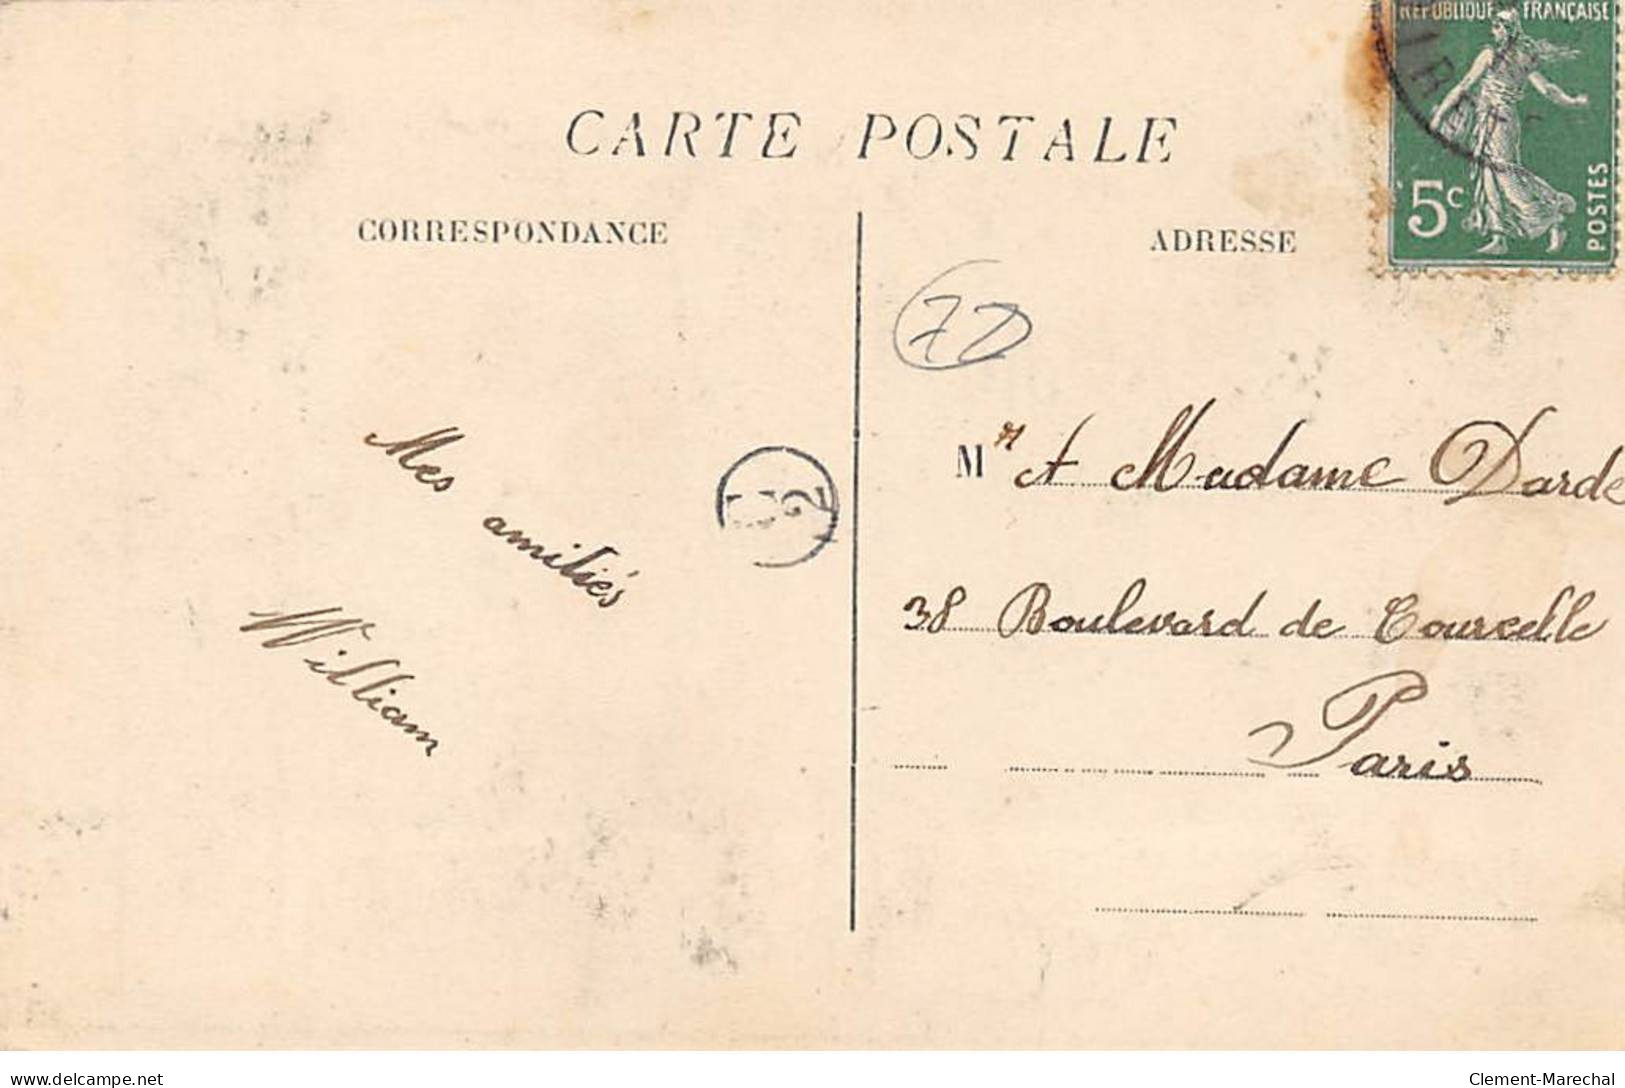 RÉPUBLIQUE FRANÇAISE
5c
POSTES
CARTE POSTALE
CORRESPONDANCE
ADRESSE
Mes amitiés
William
Mr A Madame Darde
38 Boulevard de Courcelle
Paris
delcampe.net
Clement-Marechal